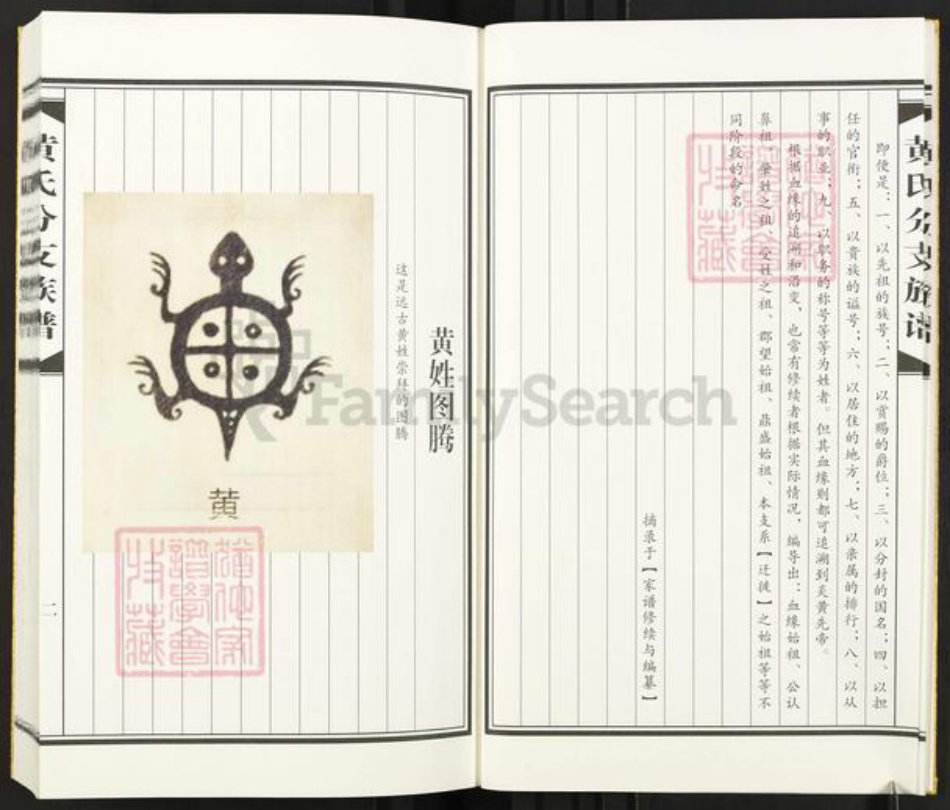 黄氏分支族谱
即便是：一、以先祖的族号；二、以赏赐的爵位；三、以分封的国名；四、以担
任的官衔；五、以贵族的谥号；六、以居住的地方；七、以亲属的排行；八、以从
事的职业；九、以职务的称号等等为姓者。但其血缘则都可追溯到炎黄先帝。
根据血缘的追溯和沿变，也常有修续者根据实际情况，编导出：血缘始祖、公认
鼻祖、肇姓之祖、受姓之祖、郡望始祖、鼎盛始祖、本支系【迁徙】之始祖等等不
同阶段的命名。
摘录于【家谱修续与编纂】
黄姓图腾
这是远古黄姓崇拜的图腾
黄
黄氏分支族谱
二
FamilySearch